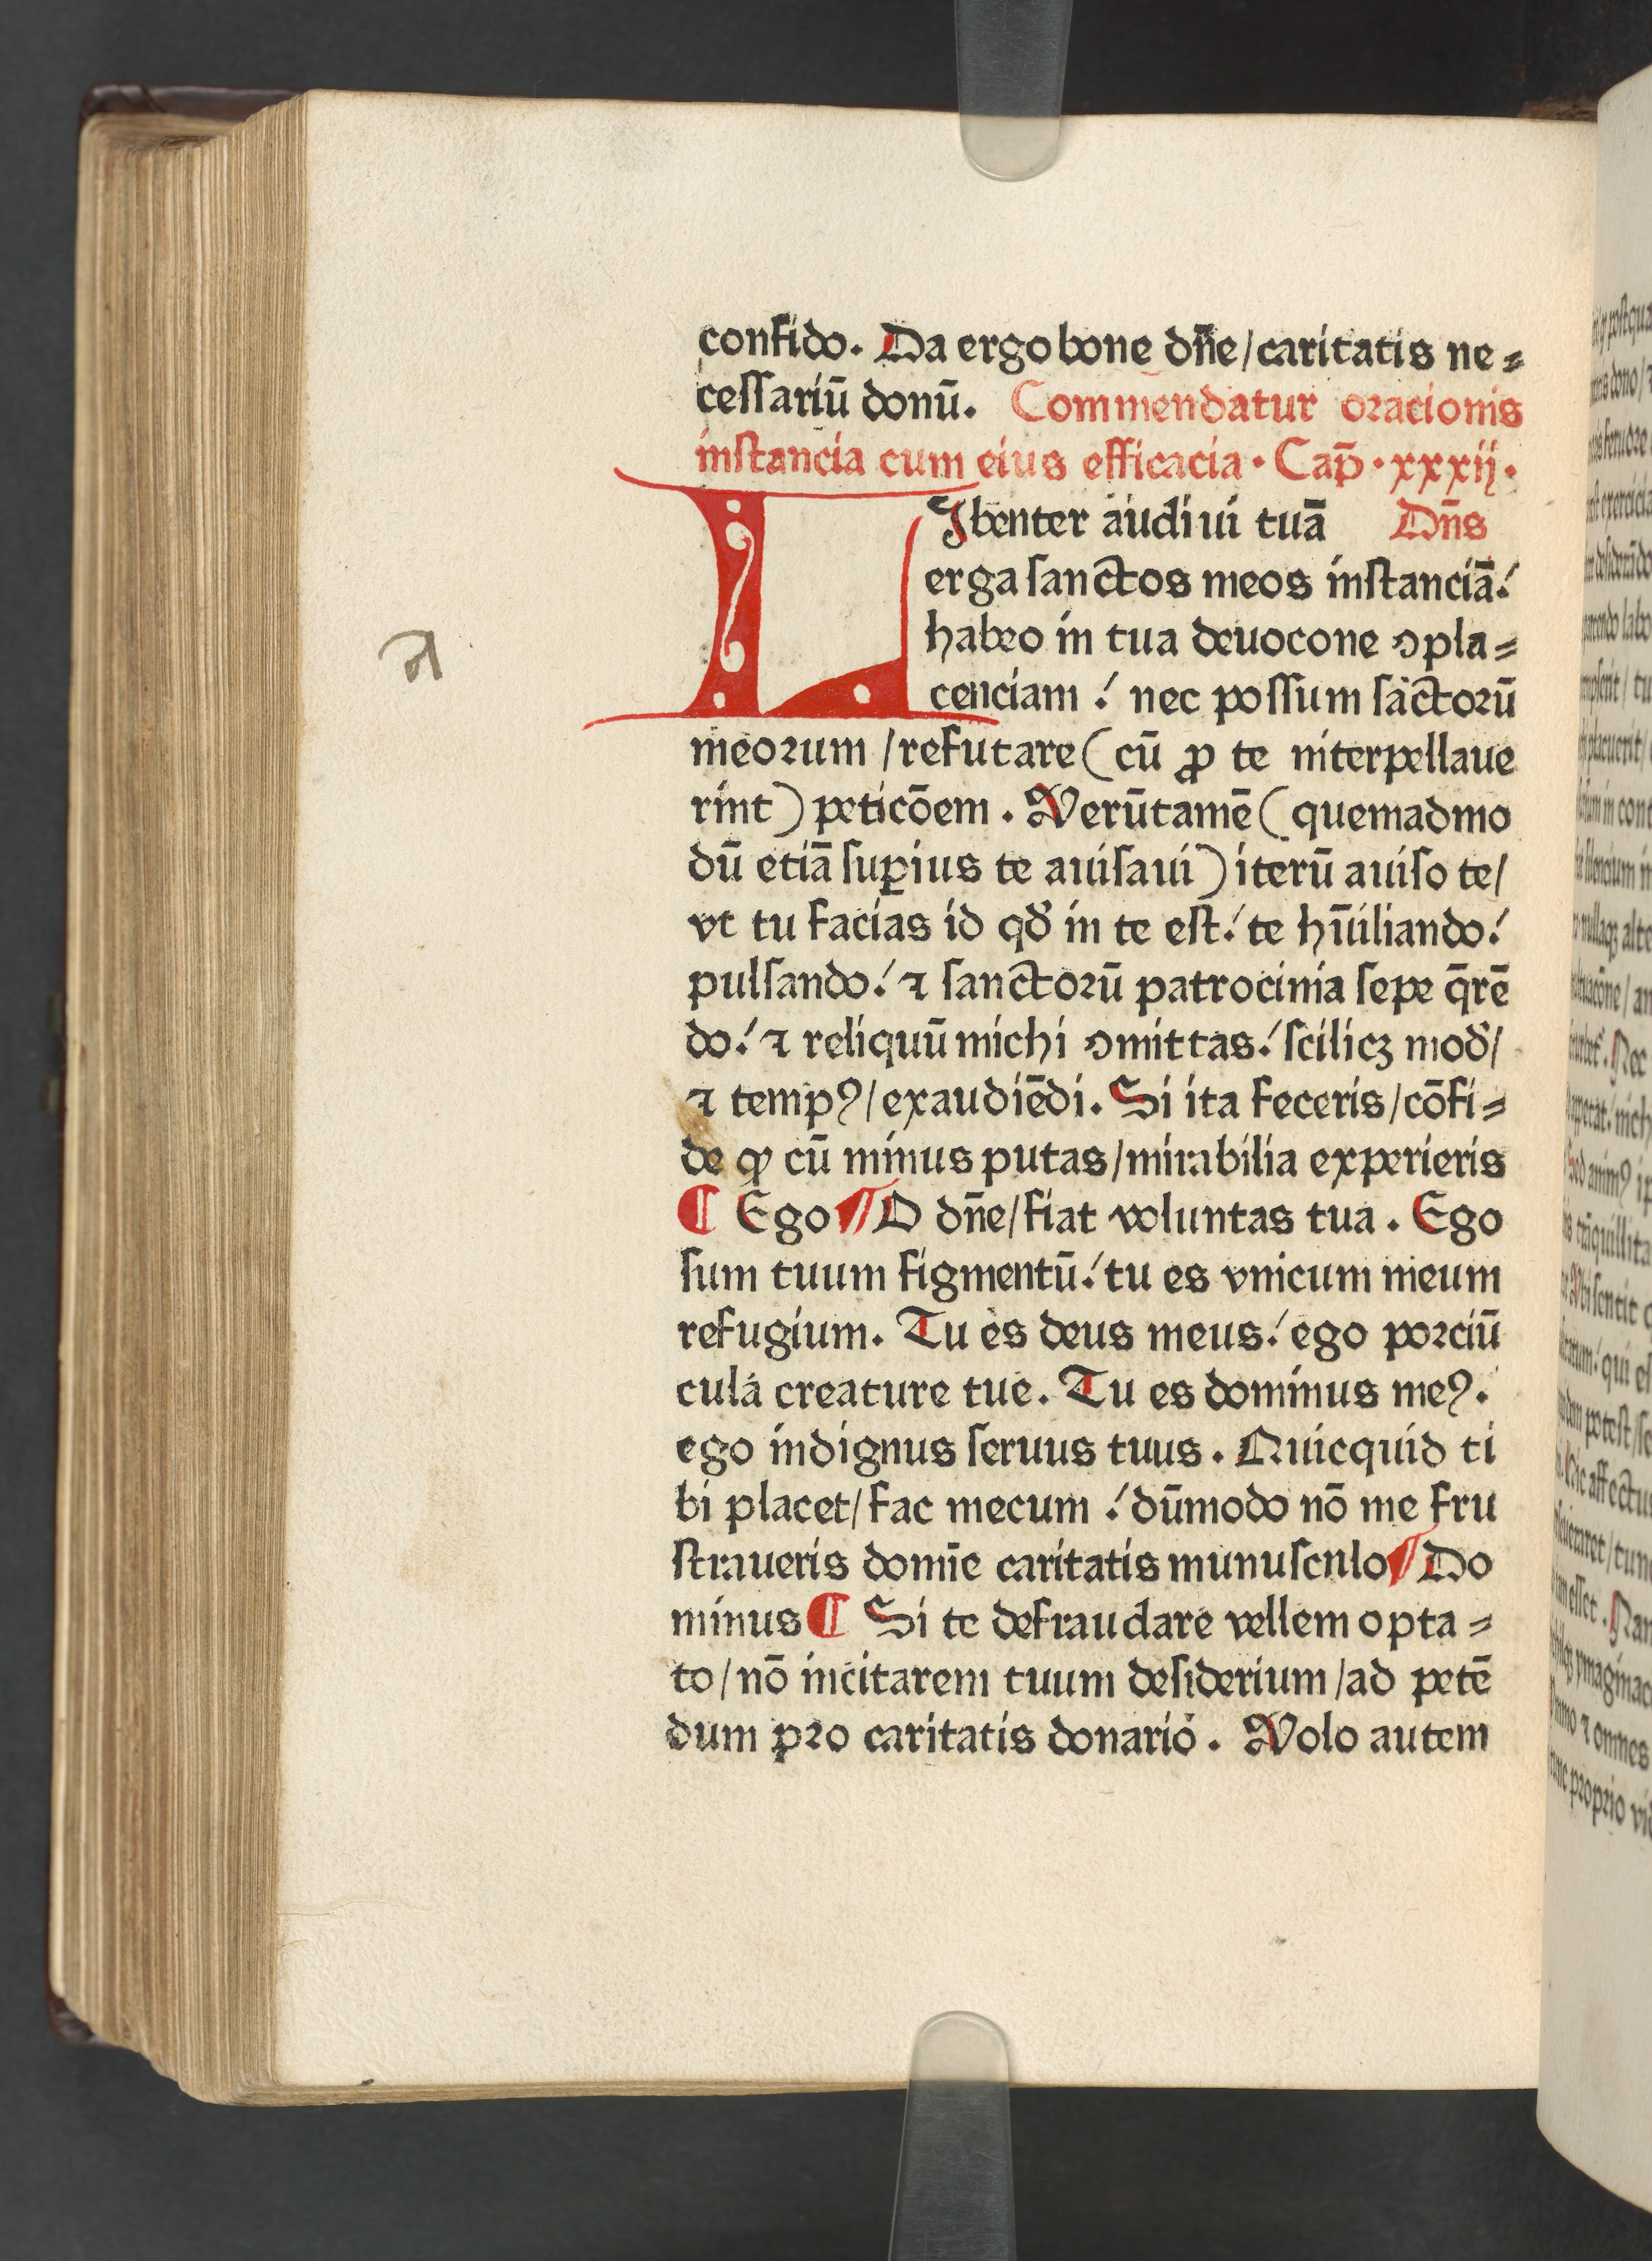 confido. Da ergo bone dn̄e/caritatis ne⸗
ceſſariū donū. Commendatur oꝛacionis
inſtancia cum eius efficacia · Cap̄ · xxxij ·
LIbenter audiui tuā Dn̄s
erga ſanctos meos inſtanciā!
habeo in tua deuocone ꝯpla⸗
cenciam ! nec poſſum ſāctoꝛū
meoꝛum /refutare (cū ꝓ te interpellaue
rint) peticōem . Verūtamē ( quemadmo
dū etiā ſuꝑius te auiſaui) iterū auiſo te/
vt tu facias id qd̛ in te eſt! te hūiliando!
pulſando! ⁊ ſanctoꝛū patrocinia ſepe q̄rē
do! ⁊ reliquū michi ꝯmittas! ſcilicꝫ mod̛/
⁊ tempꝰ/exaudiēdi. Si ita feceris/cōfi⸗
de ꝙ cū minus putas/mirabilia experieris
¶ Ego ¶ O dn̄e/fiat voluntas tua . Ego
ſum tuum figmentū! tu es vnicum meum
refugium. Tu es deus meus! ego poꝛciū
cula creature tue. Tu es dominus meꝰ.
ego indignus ſeruus tuus . Quicquid ti
bi placet/fac mecum ! dūmodo nō me fru
ſtraueris domīe caritatis munuſculo ¶ Do
minus ¶ Si te defraudare vellem opta⸗
to/nō incitarem tuum deſiderium/ad petē
dum pꝛo caritatis donario . Volo autem